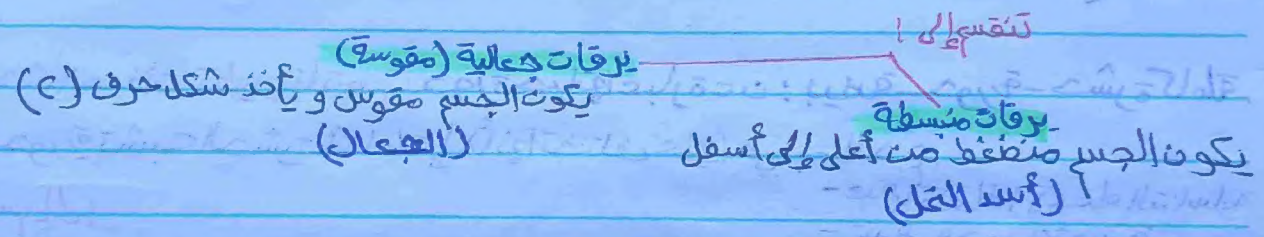 تنقسم إلى :
يرقات جعالية (مقوسة)
يكون الجسم مقوس و يأخذ شكل حرف (c)
(الجعال)
يرقات منبسطة
يكون الجسم منضغط من أعلى إلى أسفل
(أسد النمل)